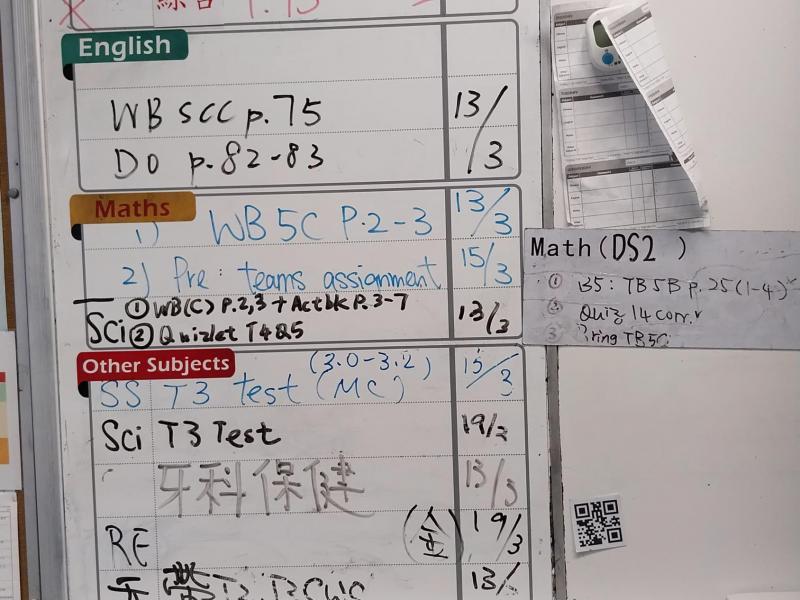 綜合
English
WB 5CC p.75 13/3
DO p.82-83
Maths
1) WB 5C P.2-3 13/3
2) Pre: teams assignment 15/3
Sci ① WB(C) P.2,3 + Act bk P.3-7 13/3
② Quizlet T4&5
Other Subjects
SS T3 test (MC) (3.0-3.2) 15/3
Sci T3 Test 19/3
牙科保健 13/3
RE (金) 19/3
13/
Math (DS2)
① B5: TB 5B p.25 (1-4)
② Quiz 14 corr.
③ Bring TB5C